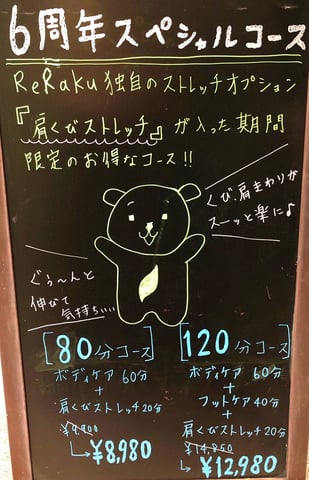 6周年スペシャルコース
ReRaku独自のストレッチオプション
『肩くびストレッチ』が入った期間
限定のお得なコース!!
くび、肩まわりが
スーッと楽に♪
ぐぅ〜んと
伸びて
気持ちいい
[80分コース]
ボディケア 60分
+
肩くびストレッチ20分
¥9,900
↳¥8,980
[120分コース]
ボディケア 60分
+
フットケア40分
+
肩くびストレッチ20分
¥14,850
↳¥12,980